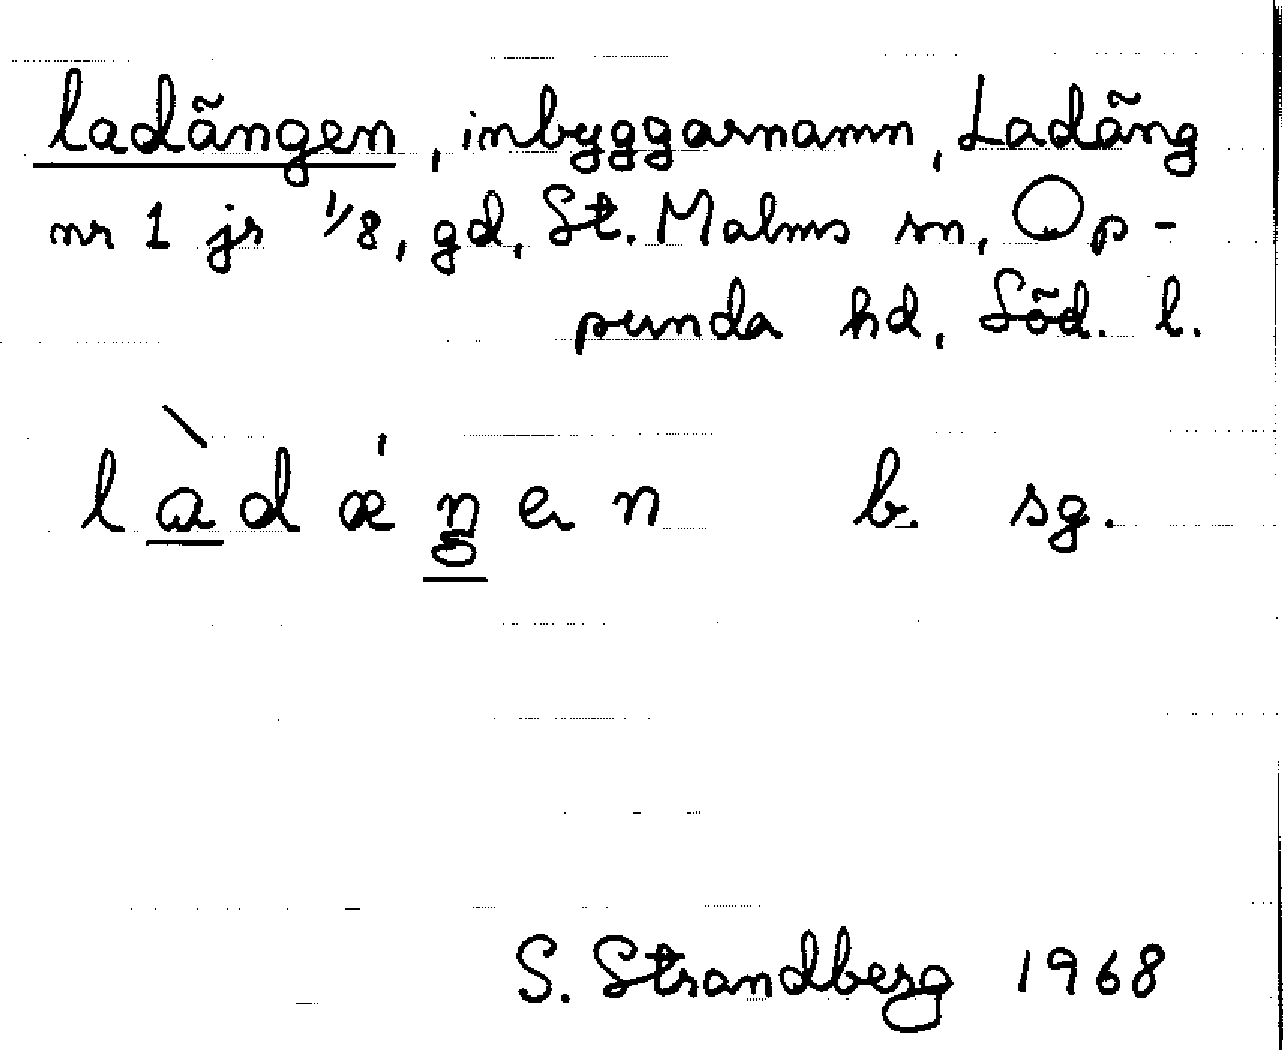 ladängen, inbyggarnamn, Ladäng
nr 1 js 1/8, gd, St. Malms sn, Op-
punda hd, Söd. l.
l à d ǽ ŋ e n b. sg.
S. Strandberg 1968